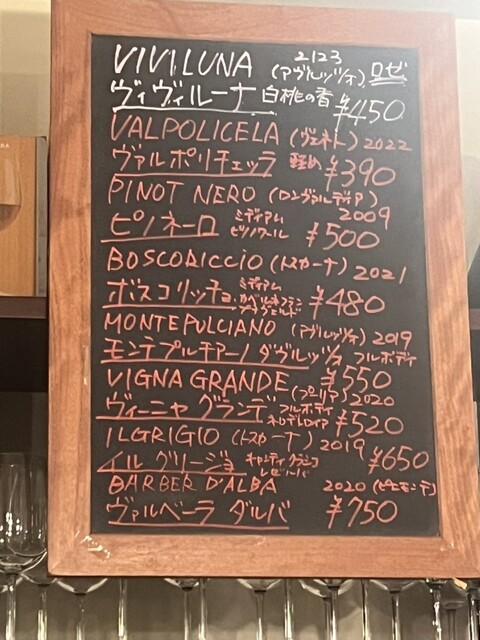 VIVILUNA 2123
(アヴルッツォ) ロゼ
ヴィヴィルーナ 白桃の香 ¥450
VALPOLICELA (ヴェネト) 2022
ヴァルポリチェッラ 軽め ¥390
PINOT NERO (ロンヴァルディア)
2009
ピノネーロ ミディアム ピノノワール ¥500
BOSCORICCIO (トスカーナ) 2021
ボスコリッチョ ミディアム ¥480
MONTEPULCIANO (アヴルッツォ) 2019
モンテプルチアーノ ダヴルッツォ フルボディ
¥550
VIGNA GRANDE (プーリア) 2020
ヴィーニャ グランデ フルボディ ¥520
ILGRIGIO (トスカーナ) 2019
イル グリージョ キャンティ クラシコ ¥650
BARBER D'ALBA 2020 (ピエモンテ)
ヴァルベーラ ダルバ ¥750